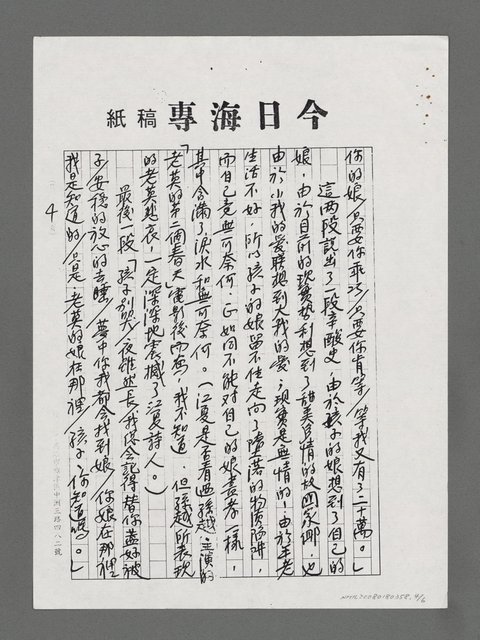 今日海專稿紙
你的娘/只要你乖巧/只要你肯等/等我又有了二十萬。」
這兩段說出了一段辛酸史,由於孩子的娘想到了自己的
娘,由於目前的現實勢利想到了甜美身情的故國家鄉,也
由於小我的愛聯想到大我的愛;現實是無情的,由於王老
生活不好,所以孩子的娘留不住走向了墮落的物質陷阱,
而自己竟無可奈何,正如同不能對自己的娘盡孝一樣,
其中含滿了淚水和無可奈何。(江夏是否看過孫越主演的
「老莫的第二個春天」電影後而寫,我不知道,但孫越所表現
的老莫悲哀,一定深深地震撼了江夏詩人。)
最後一段「孩子別哭/夜雖然長/我總會記得替你蓋好被
子/安穩的放心的去睡/夢中你我都會找到娘/你娘在那裡
我是知道的/但是,老莫的娘在那裡/孩子,你知道嗎。」
4
中洲三路四八二號
NMTL20080180358, 4/6